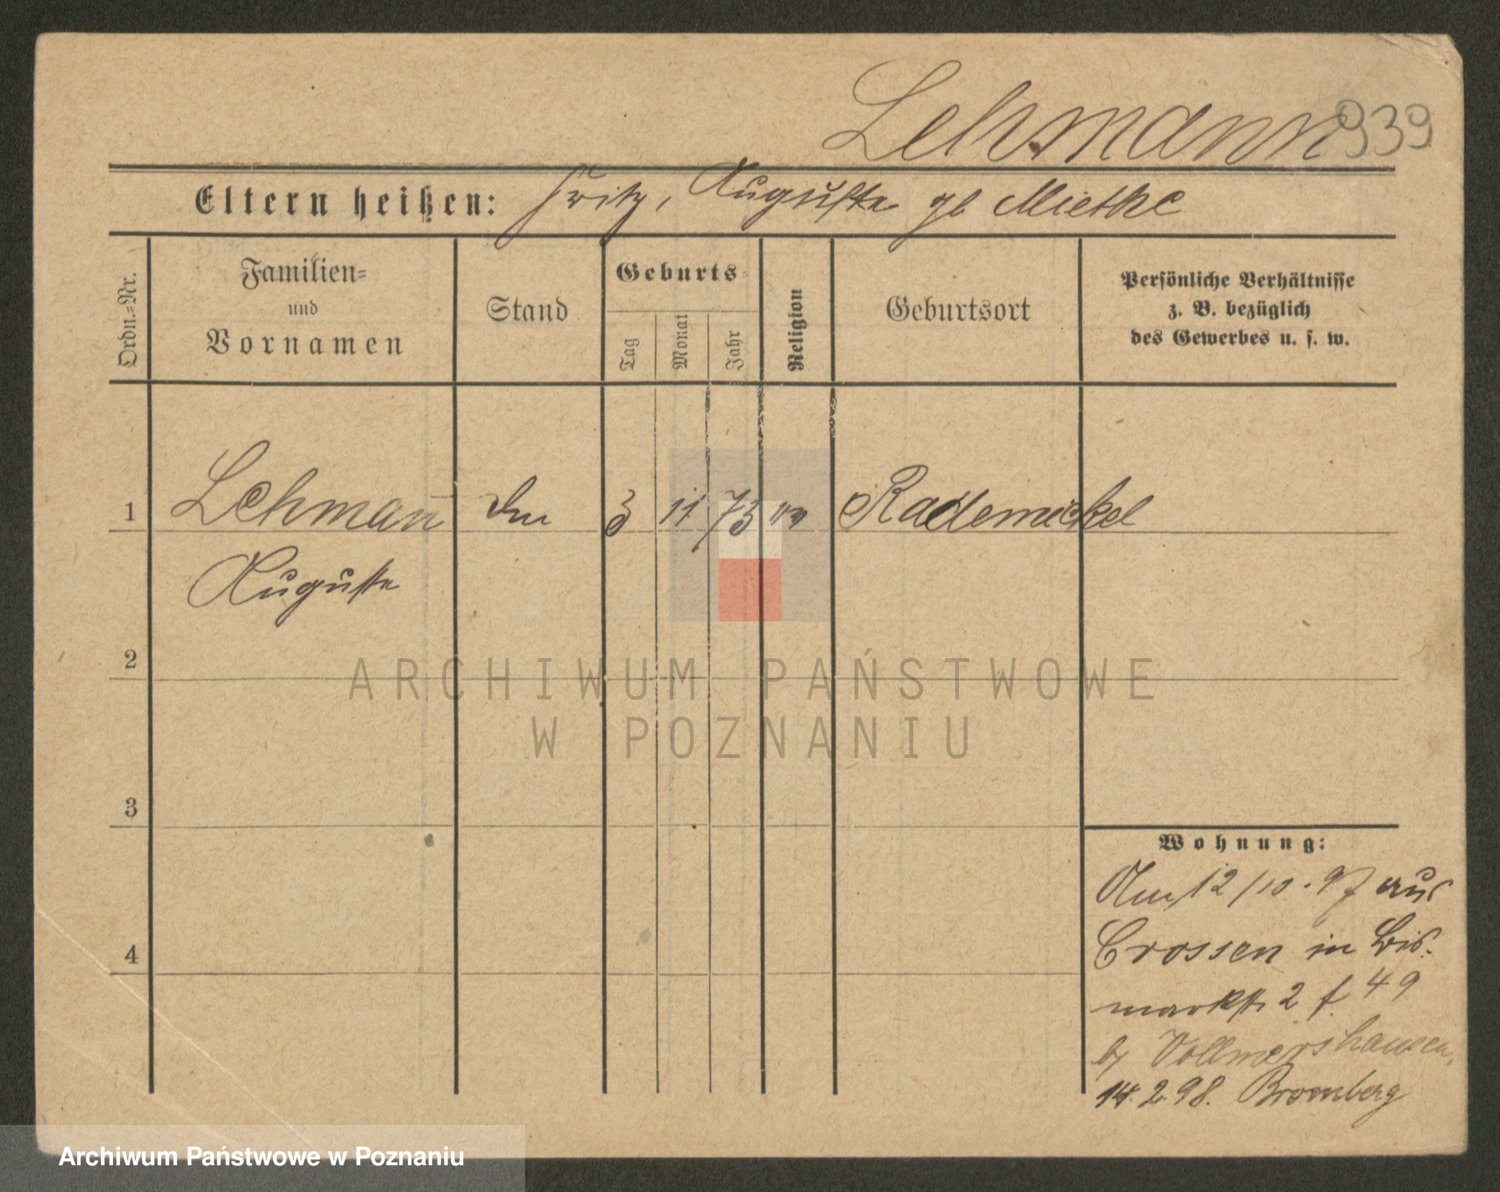 Lehmann 939
Eltern heißen: Fritz, Auguste gb Miethke
Ordn.=Nr.
Familien=
und
Vornamen
Stand
Geburts=
Tag
Monat
Jahr
Religion
Geburtsort
Persönliche Verhältnisse
z. B. bezüglich
des Gewerbes u. s. w.
1 Lehmañ 3 11 73 Rademickel
Auguste
2
ARCHIWUM PAŃSTWOWE
W POZNANIU
3
Wohnung:
Am 12/10. 97 aus
Crossen in Bis-
markstr 2 f. 49
by Vollmershausen,
4
14.2.98. Bromberg
Archiwum Państwowe w Poznaniu